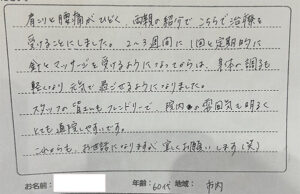 肩こりと腰痛がひどく 両親の紹介でこちらで治療を
受けることにしました。2〜3週間に1回と定期的に
針とマッサージを受けるようになってからは、身体の調子も
軽くなり元気で過ごせるようになりました。
スタッフの皆さんもフレンドリーで、院内の雰囲気も明るく
とても通院しやすいです。
これからも、お世話になりますが宜しくお願いします(笑)
お名前: 年齢:60代 地域: 市内